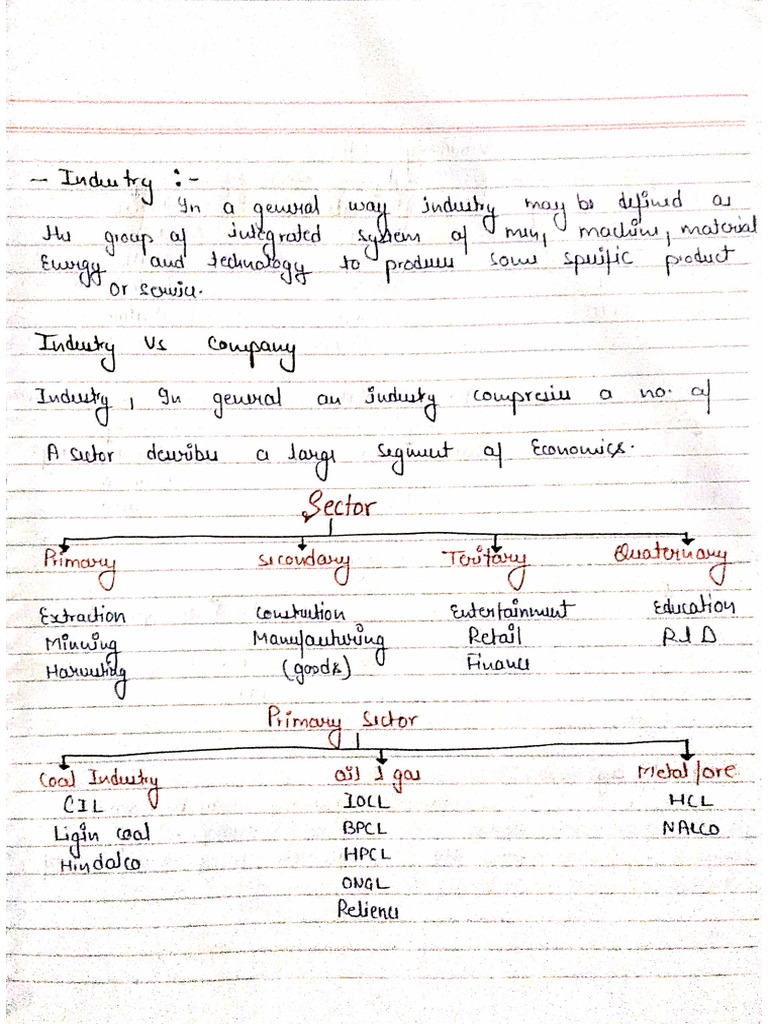 - Industry :-
In a general way industry may be defined as
the group of integrated system of men, machine, material
Energy and technology to produce some specific product
or service.
Industry Vs Company
Industry, In general an industry compresies a no. of
A sector describe a large segment of Economics.
Sector
Primary Secondary Teritary Quaternary
Extraction Construction Entertainment Education
Minning Manufacturing Retail R&D
Harvesting (goods) Finance
Primary Sector
Coal Industry oil & gas Metal/ore
CIL IOCL HCL
Ligin coal BPCL NALCO
Hindalco HPCL
ONGL
Relience